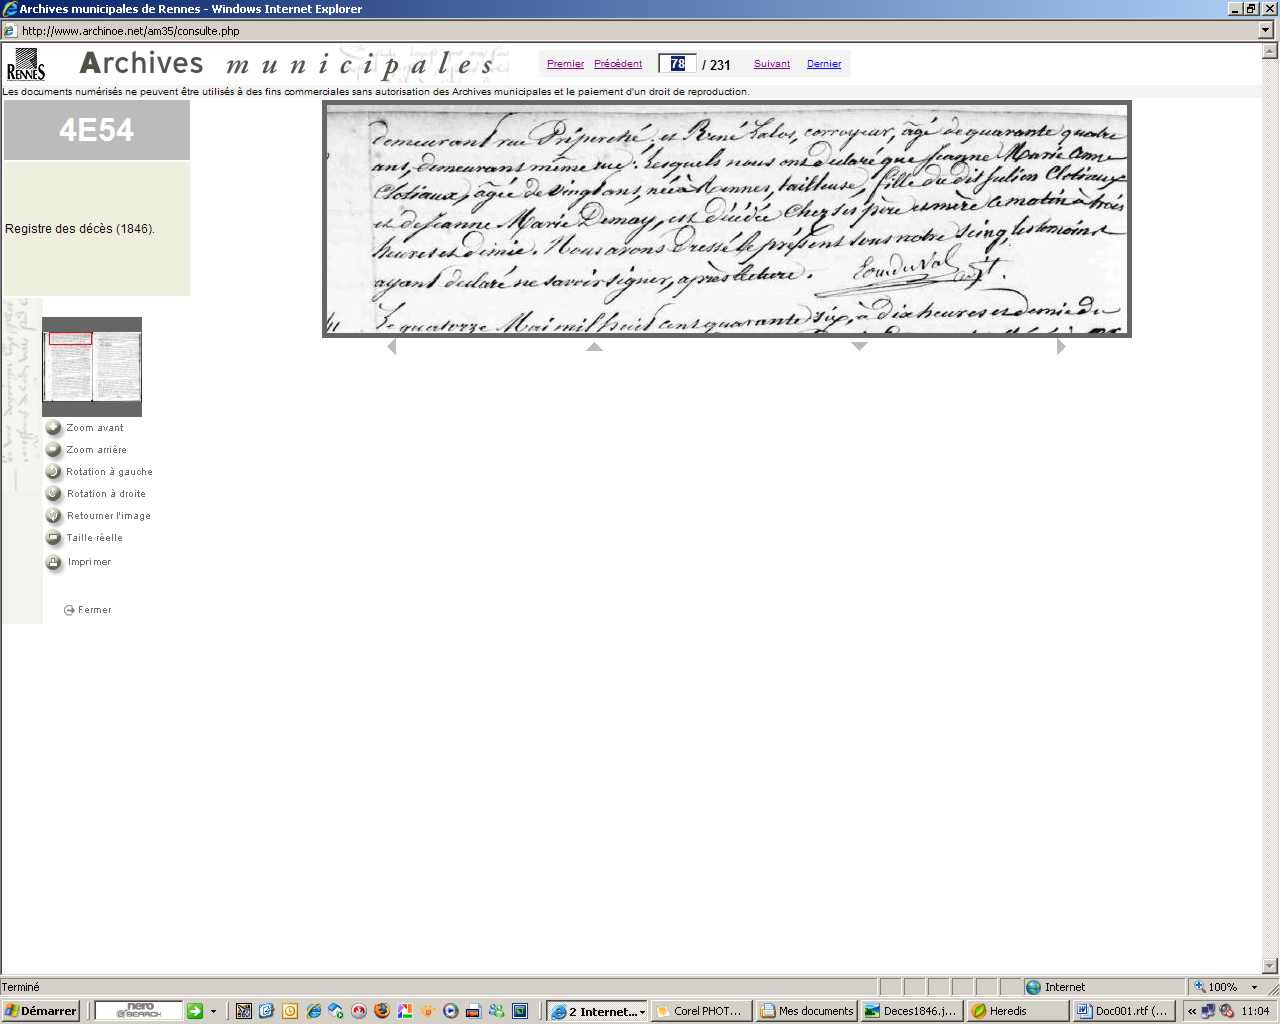 Archives municipales de Rennes - Windows Internet Explorer
http://www.archinoe.net/am35/consulte.php
RENNES
Archives municipales
Premier Précédent 78 / 231 Suivant Dernier
Les documents numérisés ne peuvent être utilisés à des fins commerciales sans autorisation des Archives municipales et le paiement d'un droit de reproduction.
4E54
Registre des décès (1846).
demeurant rue Préperché, et René Lalos, corroyeur, âgé de quarante quatre
ans, demeurant même rue : Lesquels nous ont déclaré que Jeanne Marie Anne
Clotiaux, âgée de vingt ans, née à Rennes, tailleuse, fille du dit Julien Clotiaux
et de Jeanne Marie Demay, est décédée chez ses père et mère ce matin à trois
heures et demie. Nous avons dressé le présent sous notre seing, les témoins
ayant déclaré ne savoir signer, après lecture.
Le quatorze Mai mil huit cent quarante six, à dix heures et demie du
Zoom avant
Zoom arrière
Rotation à gauche
Rotation à droite
Retourner l'image
Taille réelle
Imprimer
Fermer
Terminé
Internet
100%
Démarrer
nero
SEARCH
2 Internet...
Corel PHOT...
Mes documents
Deces1846.j...
Heredis
Doc001.rtf (...
11:04